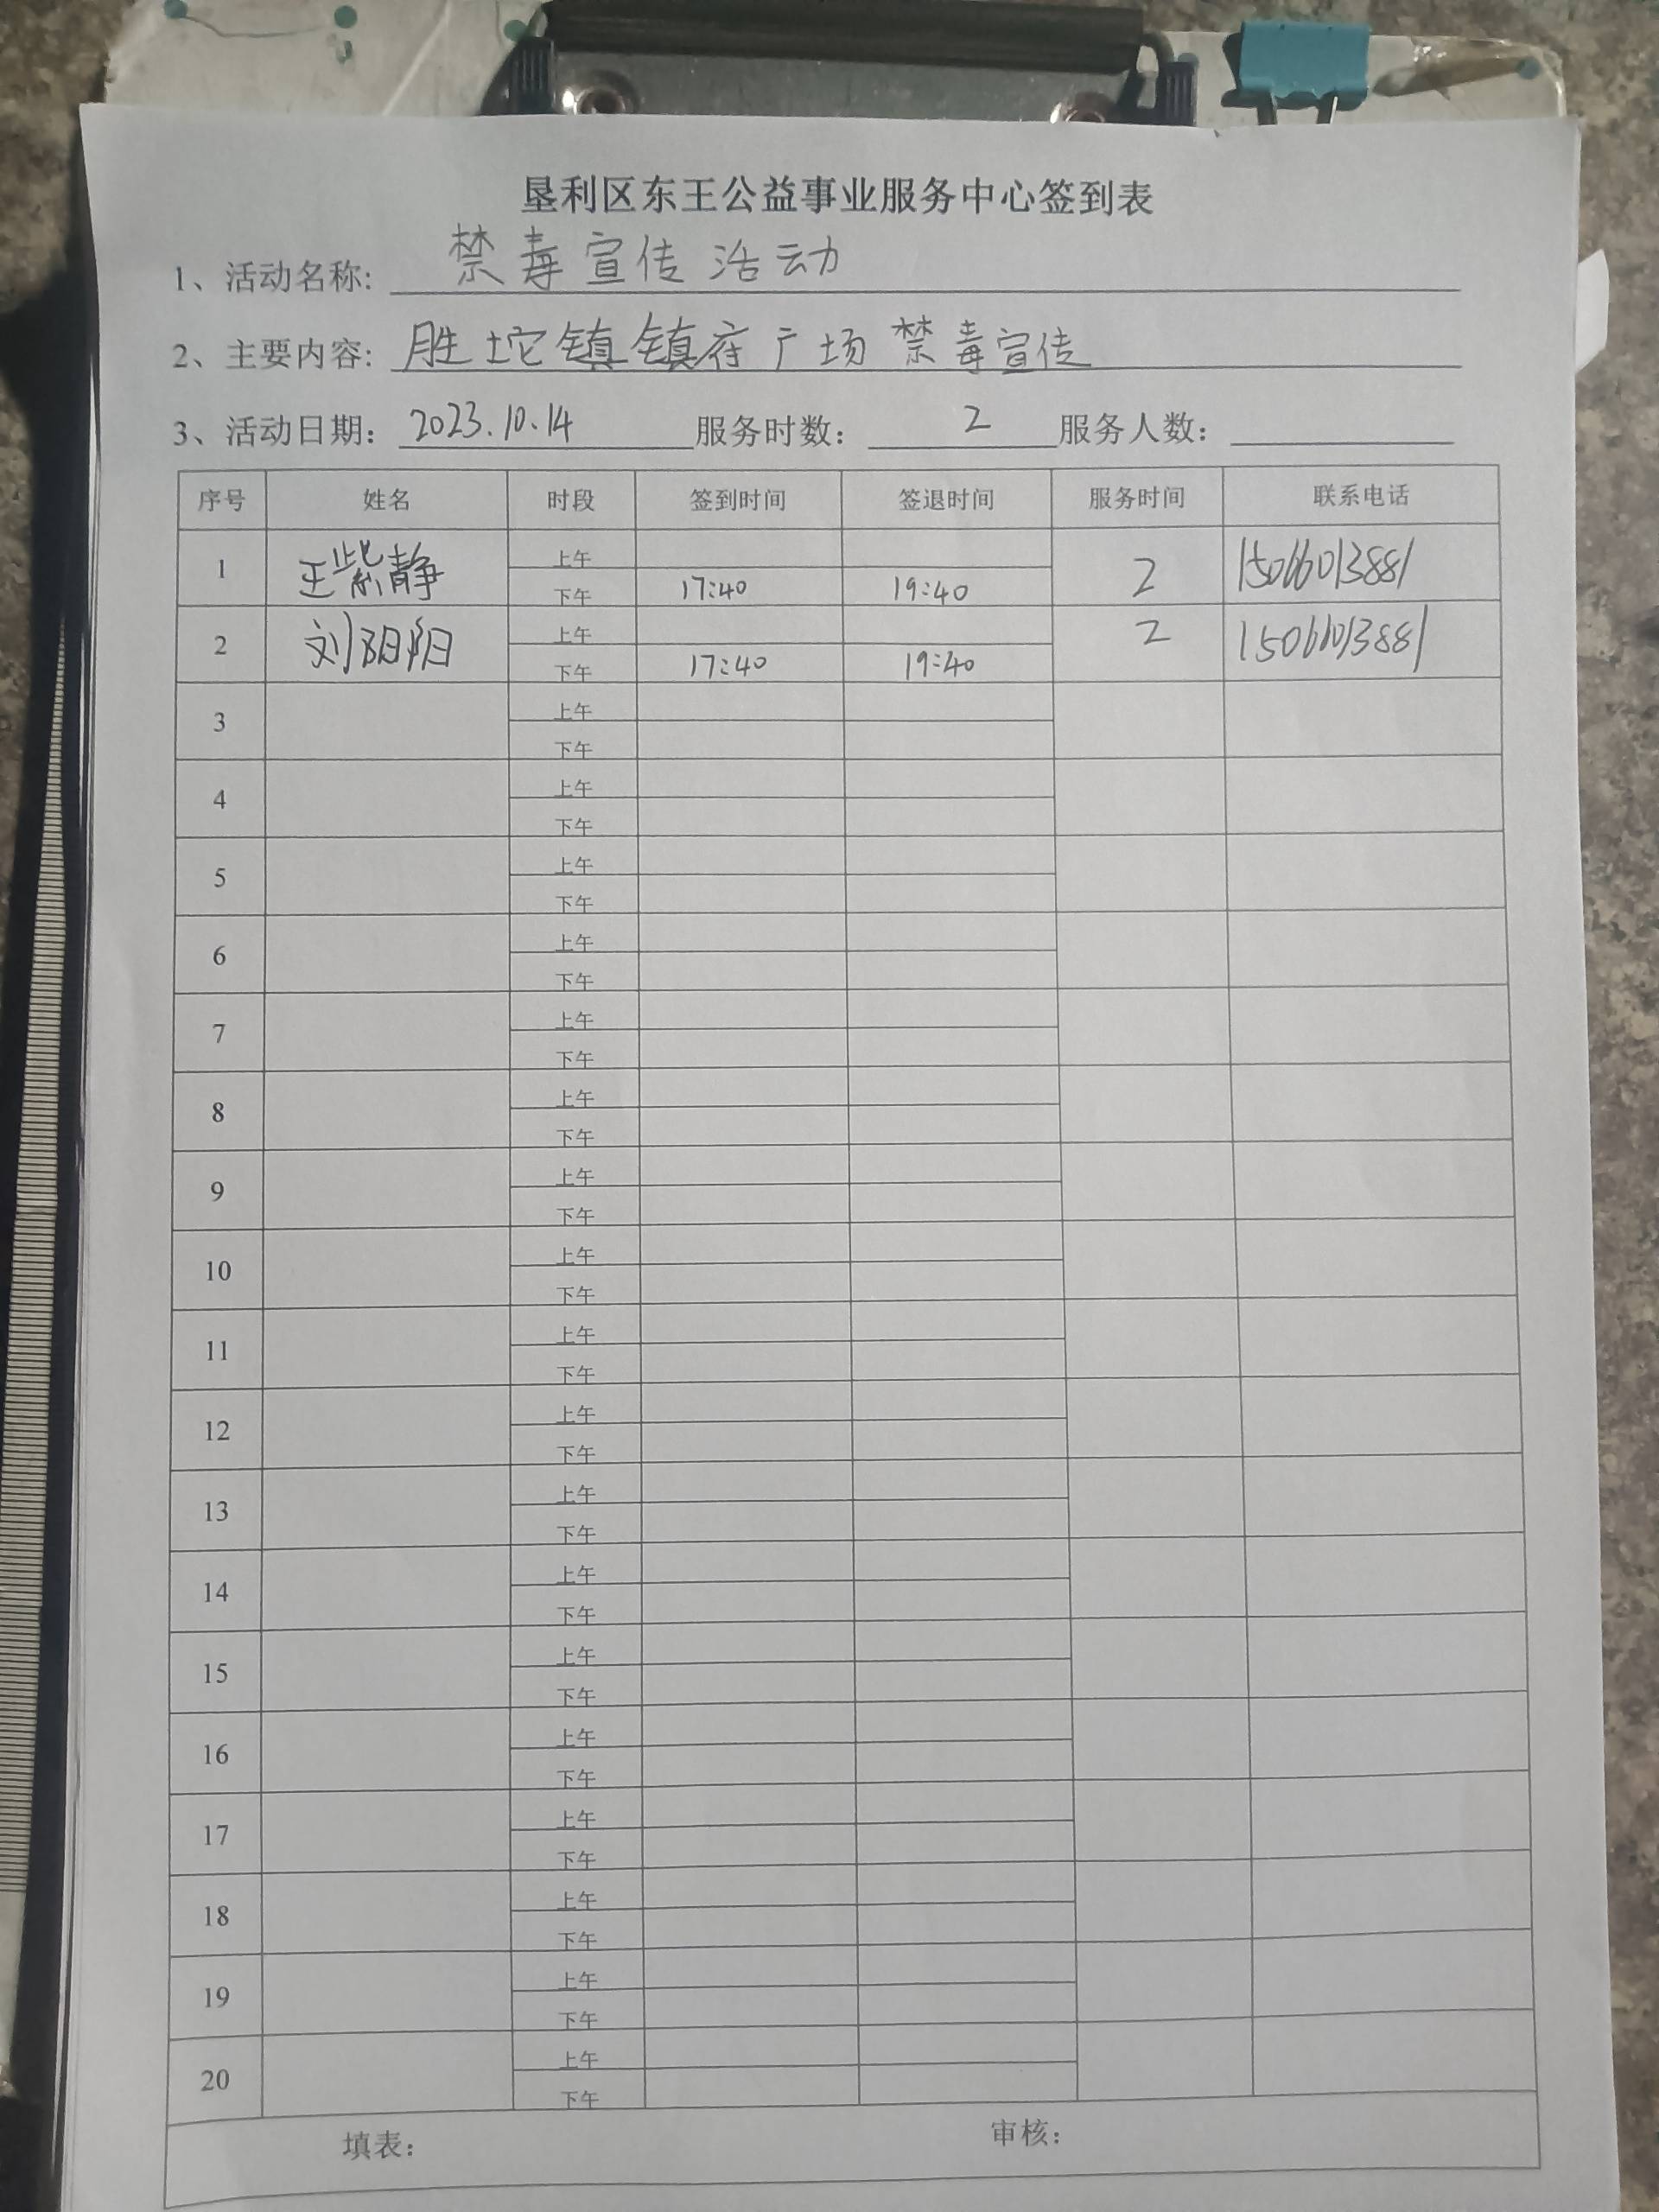 垦利区东王公益事业服务中心签到表
1、活动名称: 禁毒宣传活动
2、主要内容: 胜坨镇镇府广场禁毒宣传
3、活动日期: 2023.10.14 服务时数: 2 服务人数:
序号 姓名 时段 签到时间 签退时间 服务时间 联系电话
1 王紫静 上午 2 15066013881
下午 17:40 19:40
2 刘阳阳 上午 2
下午 17:40 19:40
3 上午
下午
4 上午
下午
5 上午
下午
6 上午
下午
7 上午
下午
8 上午
下午
9 上午
下午
10 上午
下午
11 上午
下午
12 上午
下午
13 上午
下午
14 上午
下午
15 上午
下午
16 上午
下午
17 上午
下午
18 上午
下午
19 上午
下午
20 上午
下午
填表: 审核: